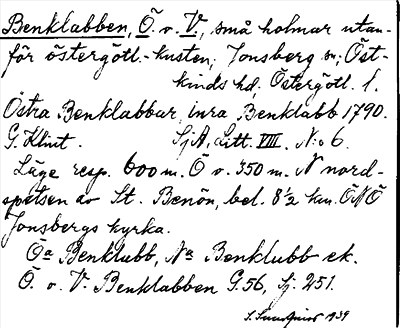 Benklabben, Ö. o. V., små holmar utan-
för östergötl.-kusten; Jonsberg sn; Öst-
kinds hd, Östergötl. l.
Östra Benklabbar, inra Benklabb 1790.
G. Klint. SjA, Litt. VIII. N:o 6.
Läge resp. 600 m. Ö o. 350 m. N nord-
spetsen av St. Benön, bel. 8½ km. ÖNÖ
Jonsbergs kyrka.
Öa Benklubb, Na Benklubb ek.
Ö. o. V. Benklabben G. 56, Sj. 251.
1939